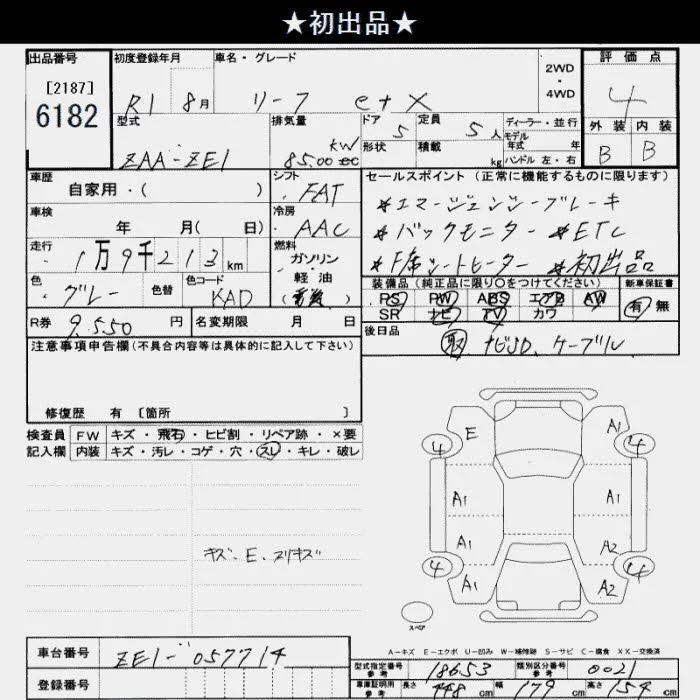 ★初出品★
出品番号 初度登録年月 車名・グレード 2WD・4WD 評価点
[2187]
6182 R1 8月 リーフ e+ X 4
型式 排気量 ドア 5 定員 5人 ディーラー・並行 外装 内装
形状 積載 kg モデル年式 年式 ハンドル 左・右
ZAA-ZE1 85.00 kW cc B B
車歴 自家用・( ) シフト FAT セールスポイント (正常に機能するものに限ります)
車検 年 月( 日) 冷房 AAC *エマージェンシーブレーキ
*バックモニター *ETC
走行 1万9千213km 燃料 ガソリン・軽油 (電気) *F席シートヒーター *初出品
色 グレー 色替 色コード KAD 装備品 (純正品に限り○をつけてください) 新車保証書
PS PW ABS エアB AW 有 無
SR ナビ TV カワ
R券 9,550円 名変期限 月 日 後日品
取 ナビSD、ケーブル
注意事項申告欄 (不具合内容等は具体的に記入して下さい)
修復歴 有 [箇所 ]
検査員 FW キズ・飛石・ヒビ割・リペア跡・×要
記入欄 内装 キズ・汚レ・コゲ・穴・スレ・キレ・破レ
E A1
4 4
A1 A1
A1 A2
4 4
A1 A2
キズ・E・ヌリキズ
スペア
A-キズ E-エクボ U-凹み W-補修跡 S-サビ C-腐食 XX-交換済
車台番号 ZE1-057714 型式指定番号 参考 18653 類別区分番号 参考 0021
登録番号 車庫証明用 参考 長さ 448cm 幅 179cm 高さ 154cm